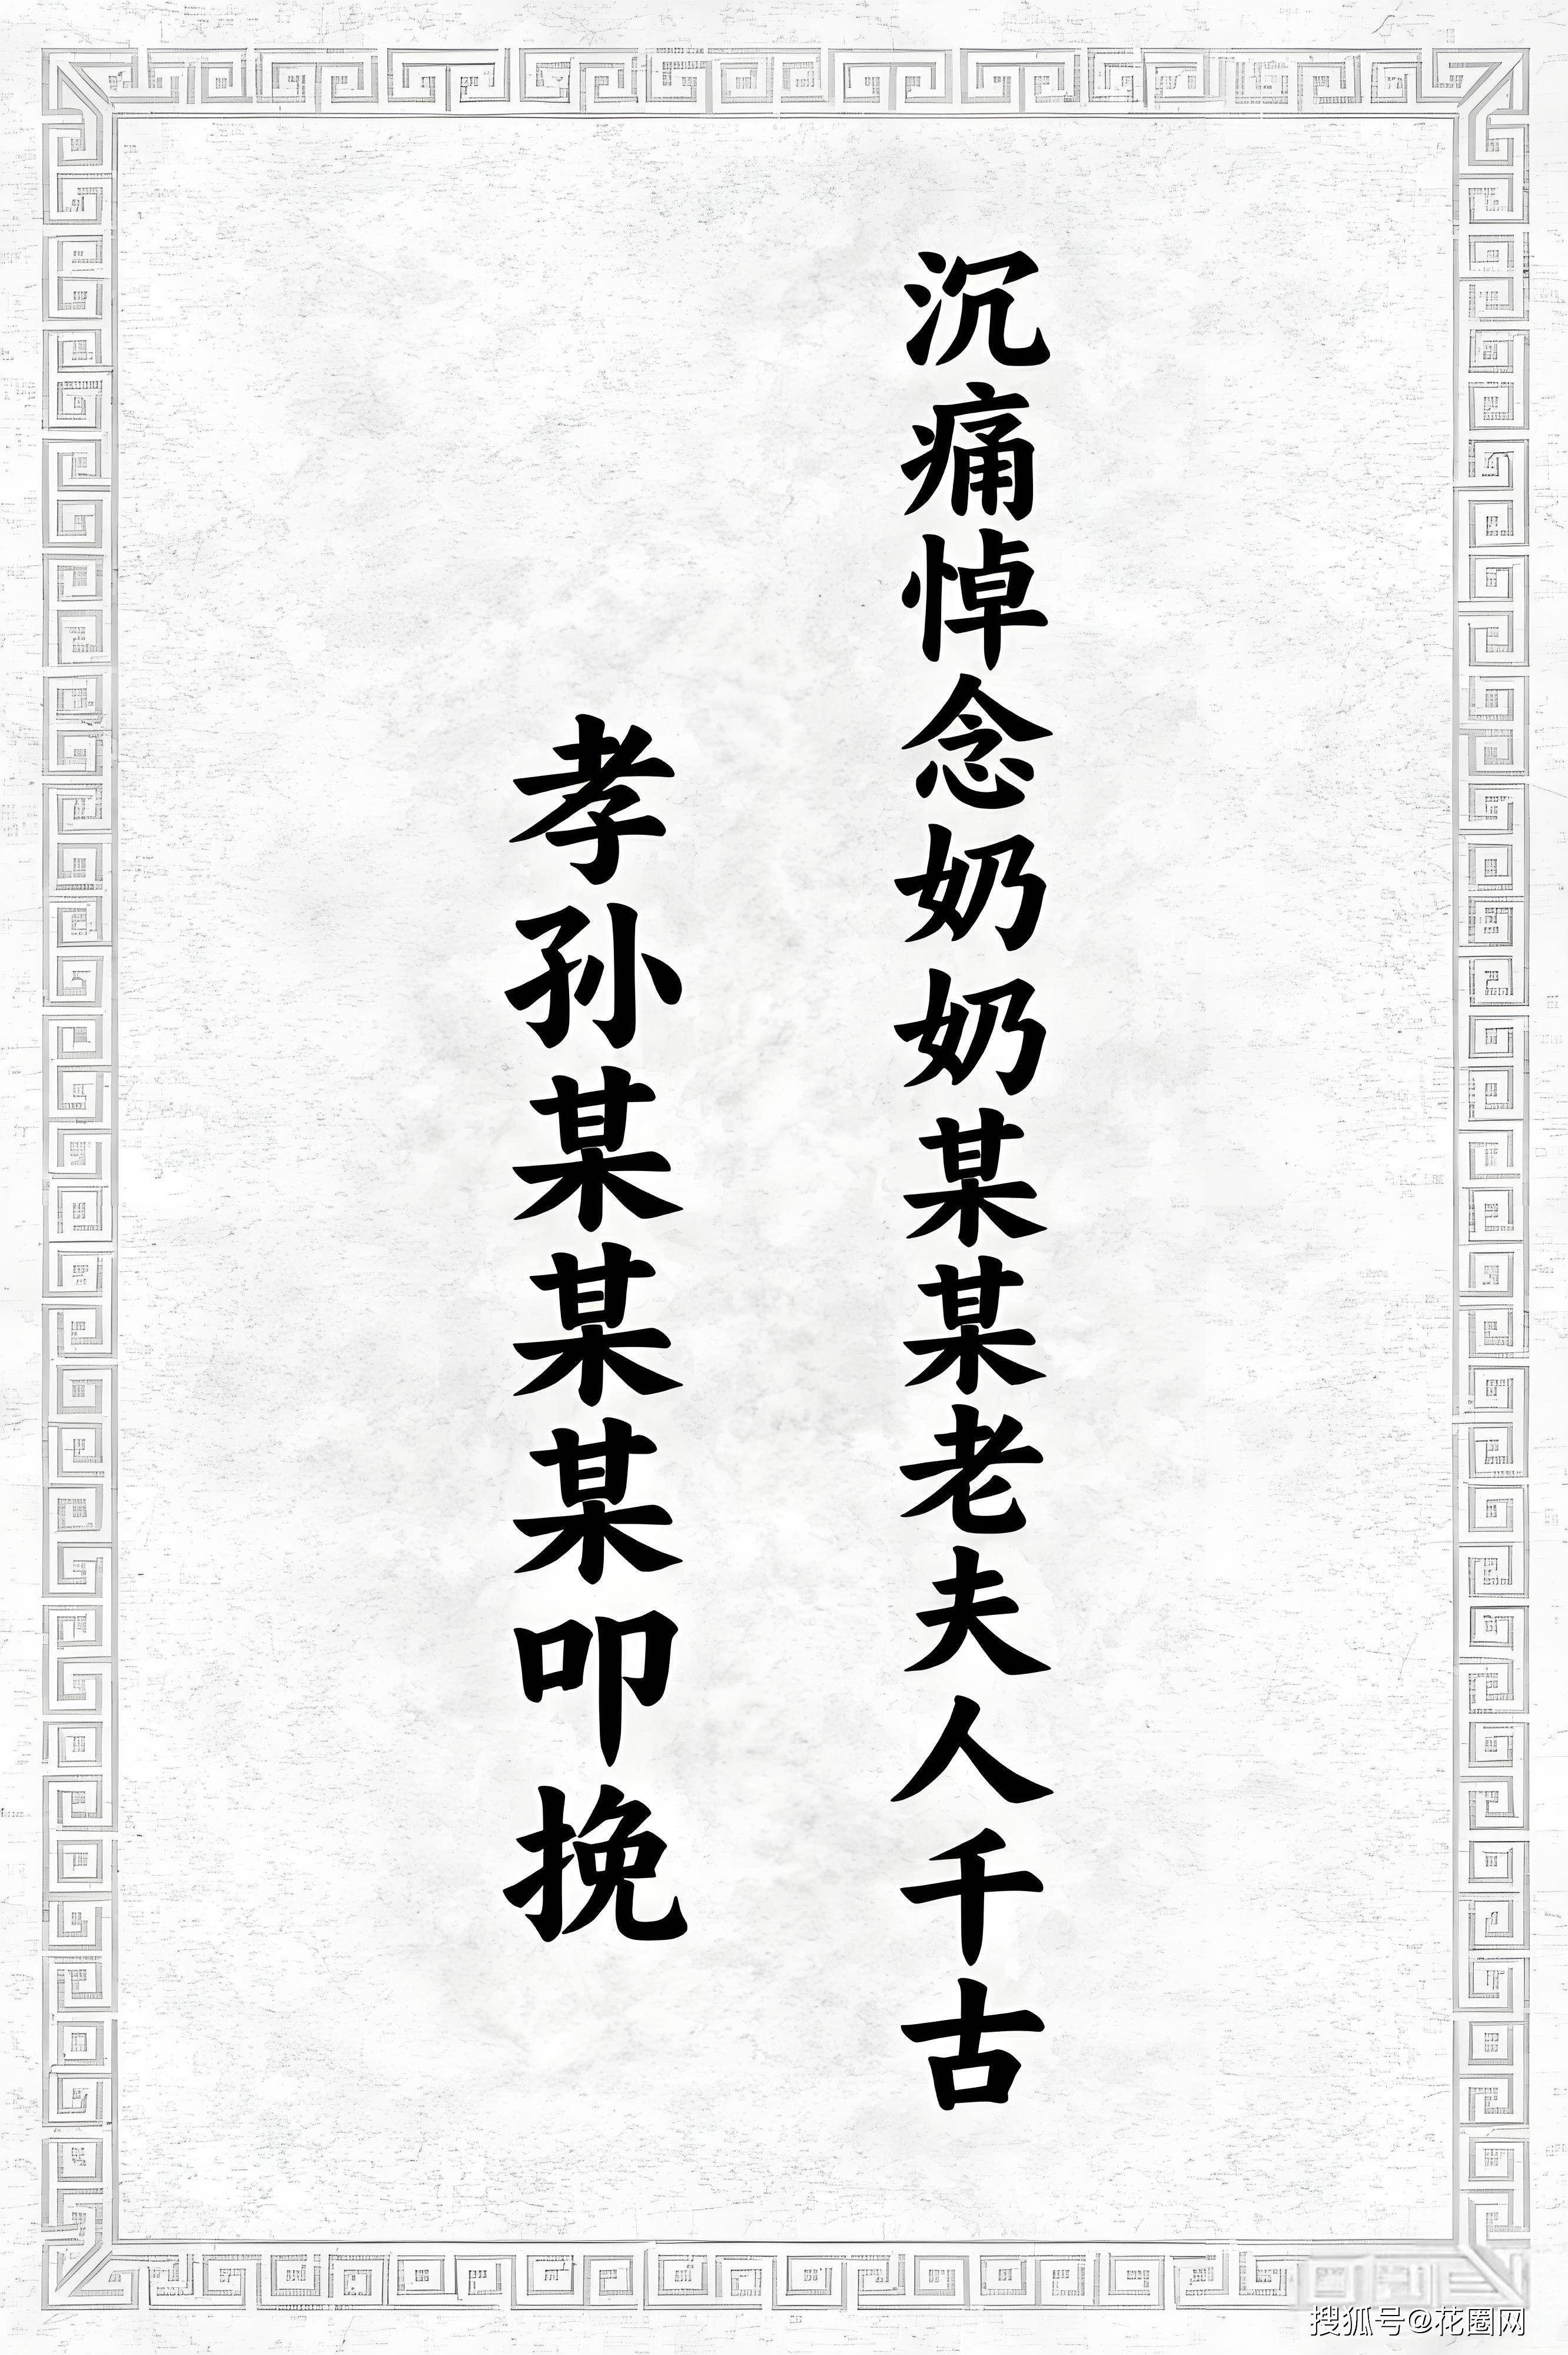 沉痛悼念奶奶某某老夫人千古
孝孙某某某叩挽
搜狐号@花圈网